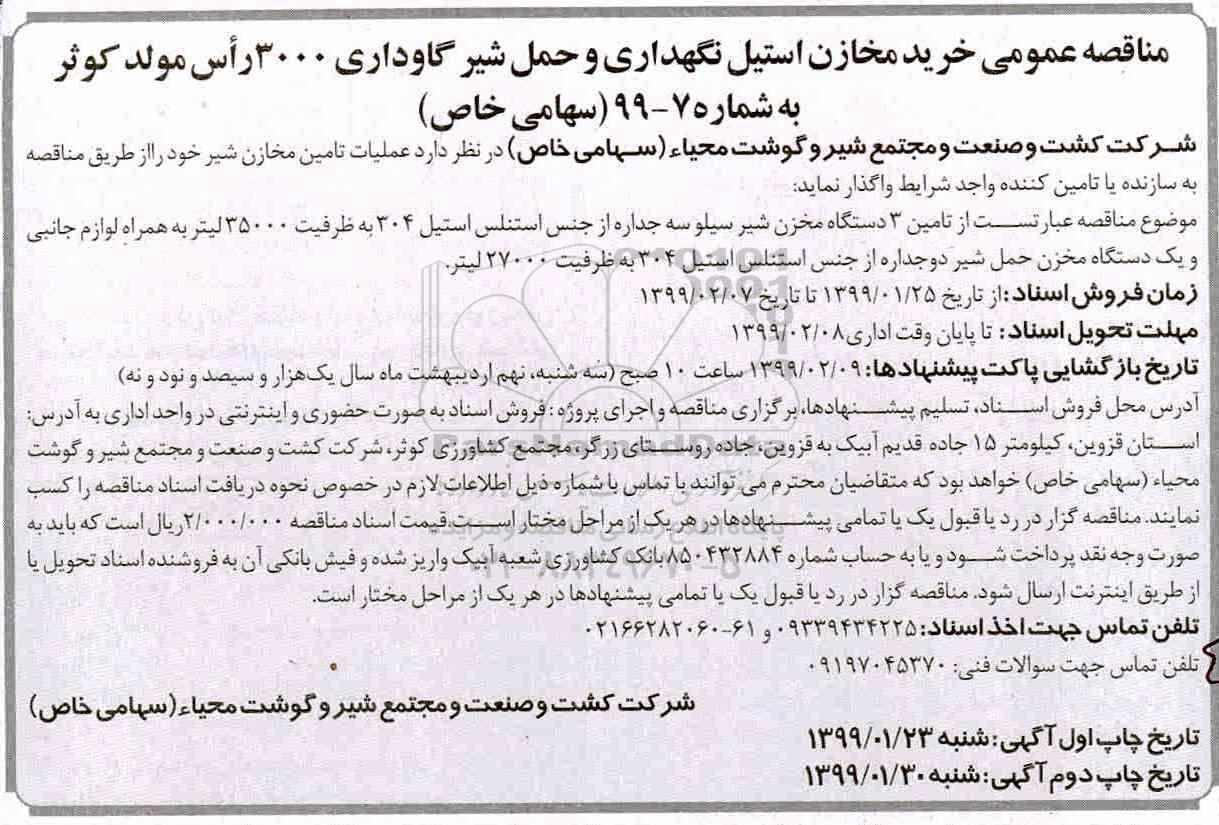 مناقصه عمومی خرید مخازن استیل نگهداری و حمل شیر گاوداری ۳۰۰۰رأس مولد کوثر
به شماره ۷-۹۹ (سهامی خاص)
شرکت کشت و صنعت و مجتمع شیر و گوشت محیاء (سهامی خاص) در نظر دارد عملیات تامین مخازن شیر خود رااز طریق مناقصه
به سازنده یا تامین کننده واجد شرایط واگذار نماید:
موضوع مناقصه عبارتست از تامین ۳ دستگاه مخزن شیر سیلو سه جداره از جنس استنلس استیل ۳۰۴ به ظرفیت ۳۵۰۰۰ لیتر به همراه لوازم جانبی
و یک دستگاه مخزن حمل شیر دوجداره از جنس استنلس استیل ۳۰۴ به ظرفیت ۲۷۰۰۰ لیتر.
زمان فروش اسناد: از تاریخ ۱۳۹۹/۰۱/۲۵ تا تاریخ ۱۳۹۹/۰۲/۰۷
مهلت تحویل اسناد: تا پایان وقت اداری ۱۳۹۹/۰۲/۰۸
تاریخ بازگشایی پاکت پیشنهادها: ۱۳۹۹/۰۲/۰۹ ساعت ۱۰ صبح (سه شنبه، نهم اردیبهشت ماه سال یک‌هزار و سیصد و نود و نه)
آدرس محل فروش اسناد، تسلیم پیشنهادها، برگزاری مناقصه و اجرای پروژه : فروش اسناد به صورت حضوری و اینترنتی در واحد اداری به آدرس:
استان قزوین، کیلومتر ۱۵ جاده قدیم آبیک به قزوین، جاده روستای زرگر، مجتمع کشاورزی کوثر، شرکت کشت و صنعت و مجتمع شیر و گوشت
محیاء (سهامی خاص) خواهد بود که متقاضیان محترم می توانند با تماس با شماره ذیل اطلاعات لازم در خصوص نحوه دریافت اسناد مناقصه را کسب
نمایند. مناقصه گزار در رد یا قبول یک یا تمامی پیشنهادها در هر یک از مراحل مختار است. قیمت اسناد مناقصه ۲/۰۰۰/۰۰۰ریال است که باید به
صورت وجه نقد پرداخت شود و یا به حساب شماره ۸۵۰۴۳۲۸۸۴بانک کشاورزی شعبه آبیک واریز شده و فیش بانکی آن به فروشنده اسناد تحویل یا
از طریق اینترنت ارسال شود. مناقصه گزار در رد یا قبول یک یا تمامی پیشنهادها در هر یک از مراحل مختار است.
تلفن تماس جهت اخذ اسناد: ۰۹۳۳۹۴۳۴۲۲۵ و ۶۱-۰۲۱۶۶۲۸۲۰۶۰
تلفن تماس جهت سوالات فنی: ۰۹۱۹۷۰۴۵۳۷۰
شرکت کشت و صنعت و مجتمع شیر و گوشت محیاء (سهامی خاص)
تاریخ چاپ اول آگهی: شنبه ۱۳۹۹/۰۱/۲۳
تاریخ چاپ دوم آگهی: شنبه ۱۳۹۹/۰۱/۳۰
ParsNamadData